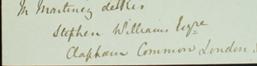 M Martinez
Stephen Williams Esqre
Clapham Common London